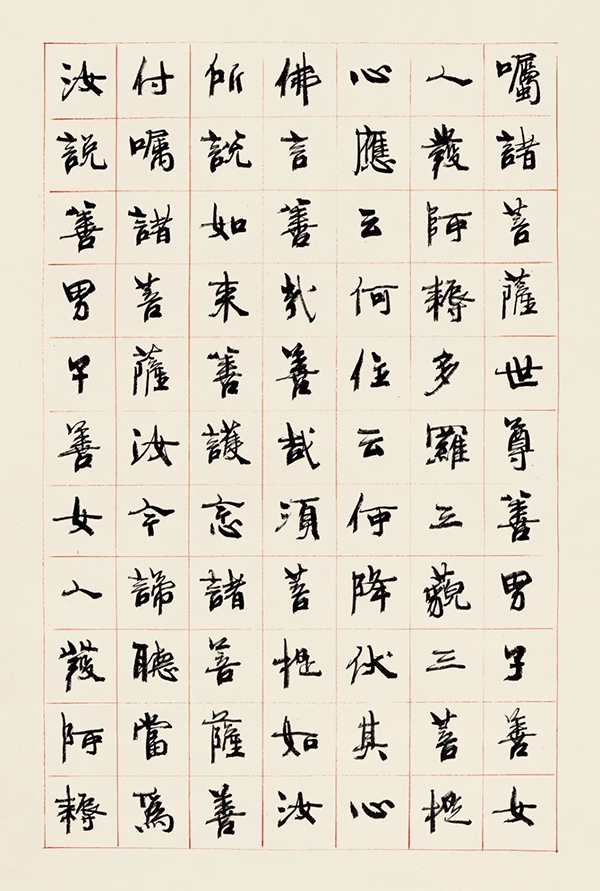 囑諸菩薩世尊善男子善女
人發阿耨多羅三藐三菩提
心應云何住云何降伏其心
佛言善哉善哉須菩提如汝
所説如來善護念諸菩薩善
付囑諸菩薩汝今諦聽當爲
汝説善男子善女人發阿耨